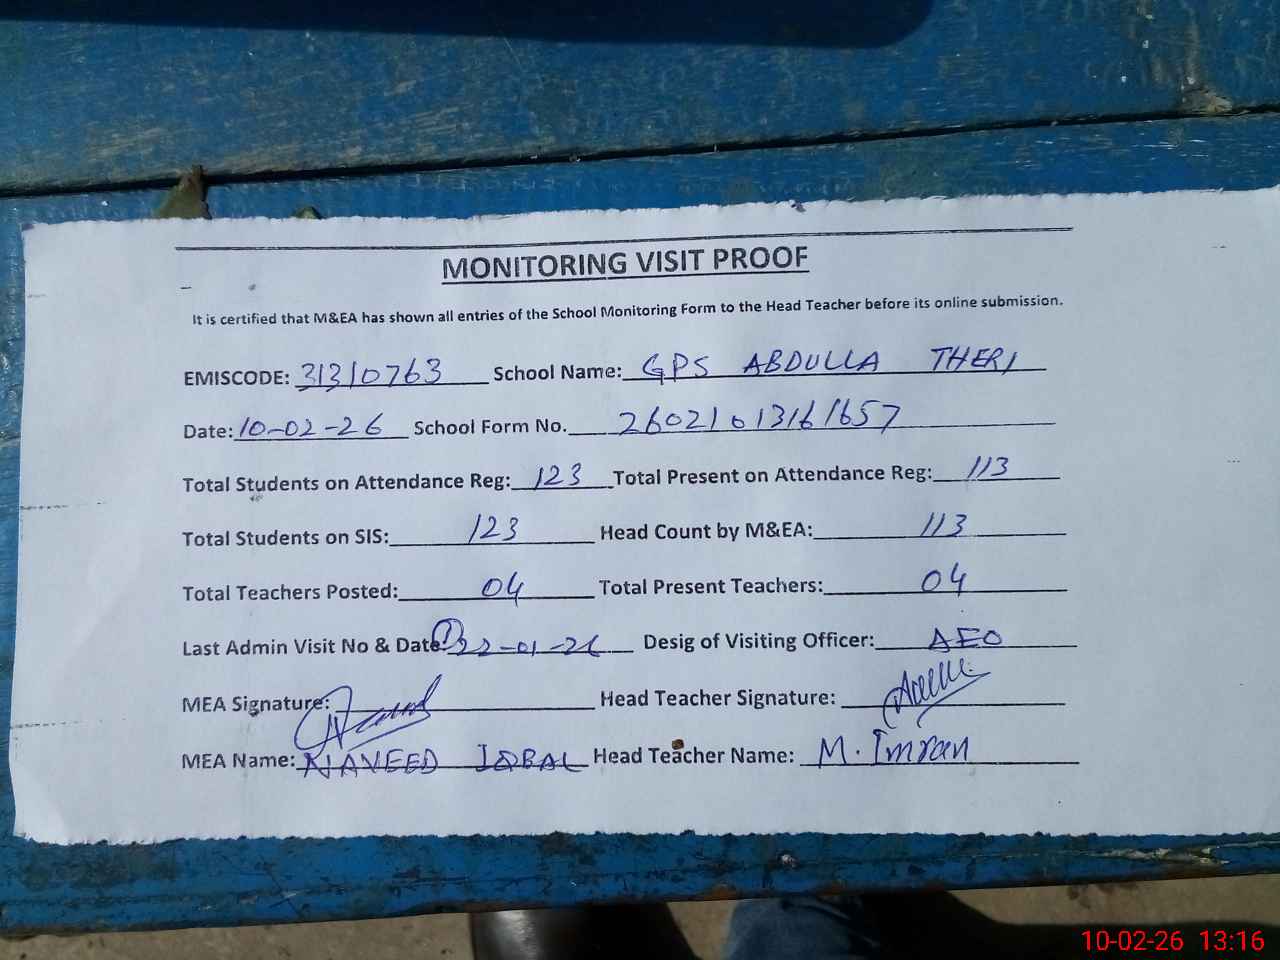 MONITORING VISIT PROOF
It is certified that M&EA has shown all entries of the School Monitoring Form to the Head Teacher before its online submission.
EMISCODE: 31310763 School Name: GPS ABDULLA THERI
Date: 10-02-26 School Form No. 26021013161657
Total Students on Attendance Reg: 123 Total Present on Attendance Reg: 113
Total Students on SIS: 123 Head Count by M&EA: 113
Total Teachers Posted: 04 Total Present Teachers: 04
Last Admin Visit No & Date: 1 22-01-26 Desig of Visiting Officer: AEO
MEA Signature: Head Teacher Signature:
MEA Name: NAVEED IQBAL Head Teacher Name: M. Imran
10-02-26 13:16